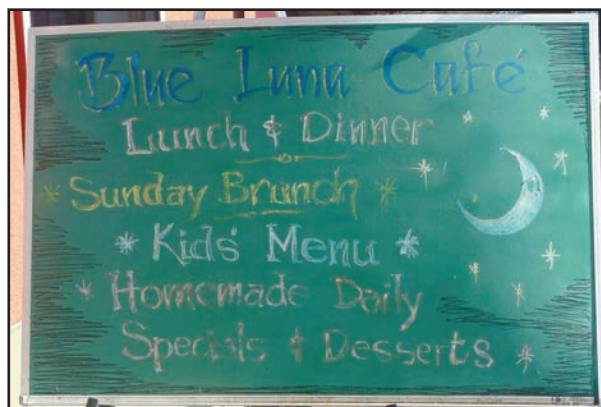 Blue Luna Café
Lunch & Dinner
Sunday Brunch
Kids' Menu
Homemade Daily
Specials & Desserts